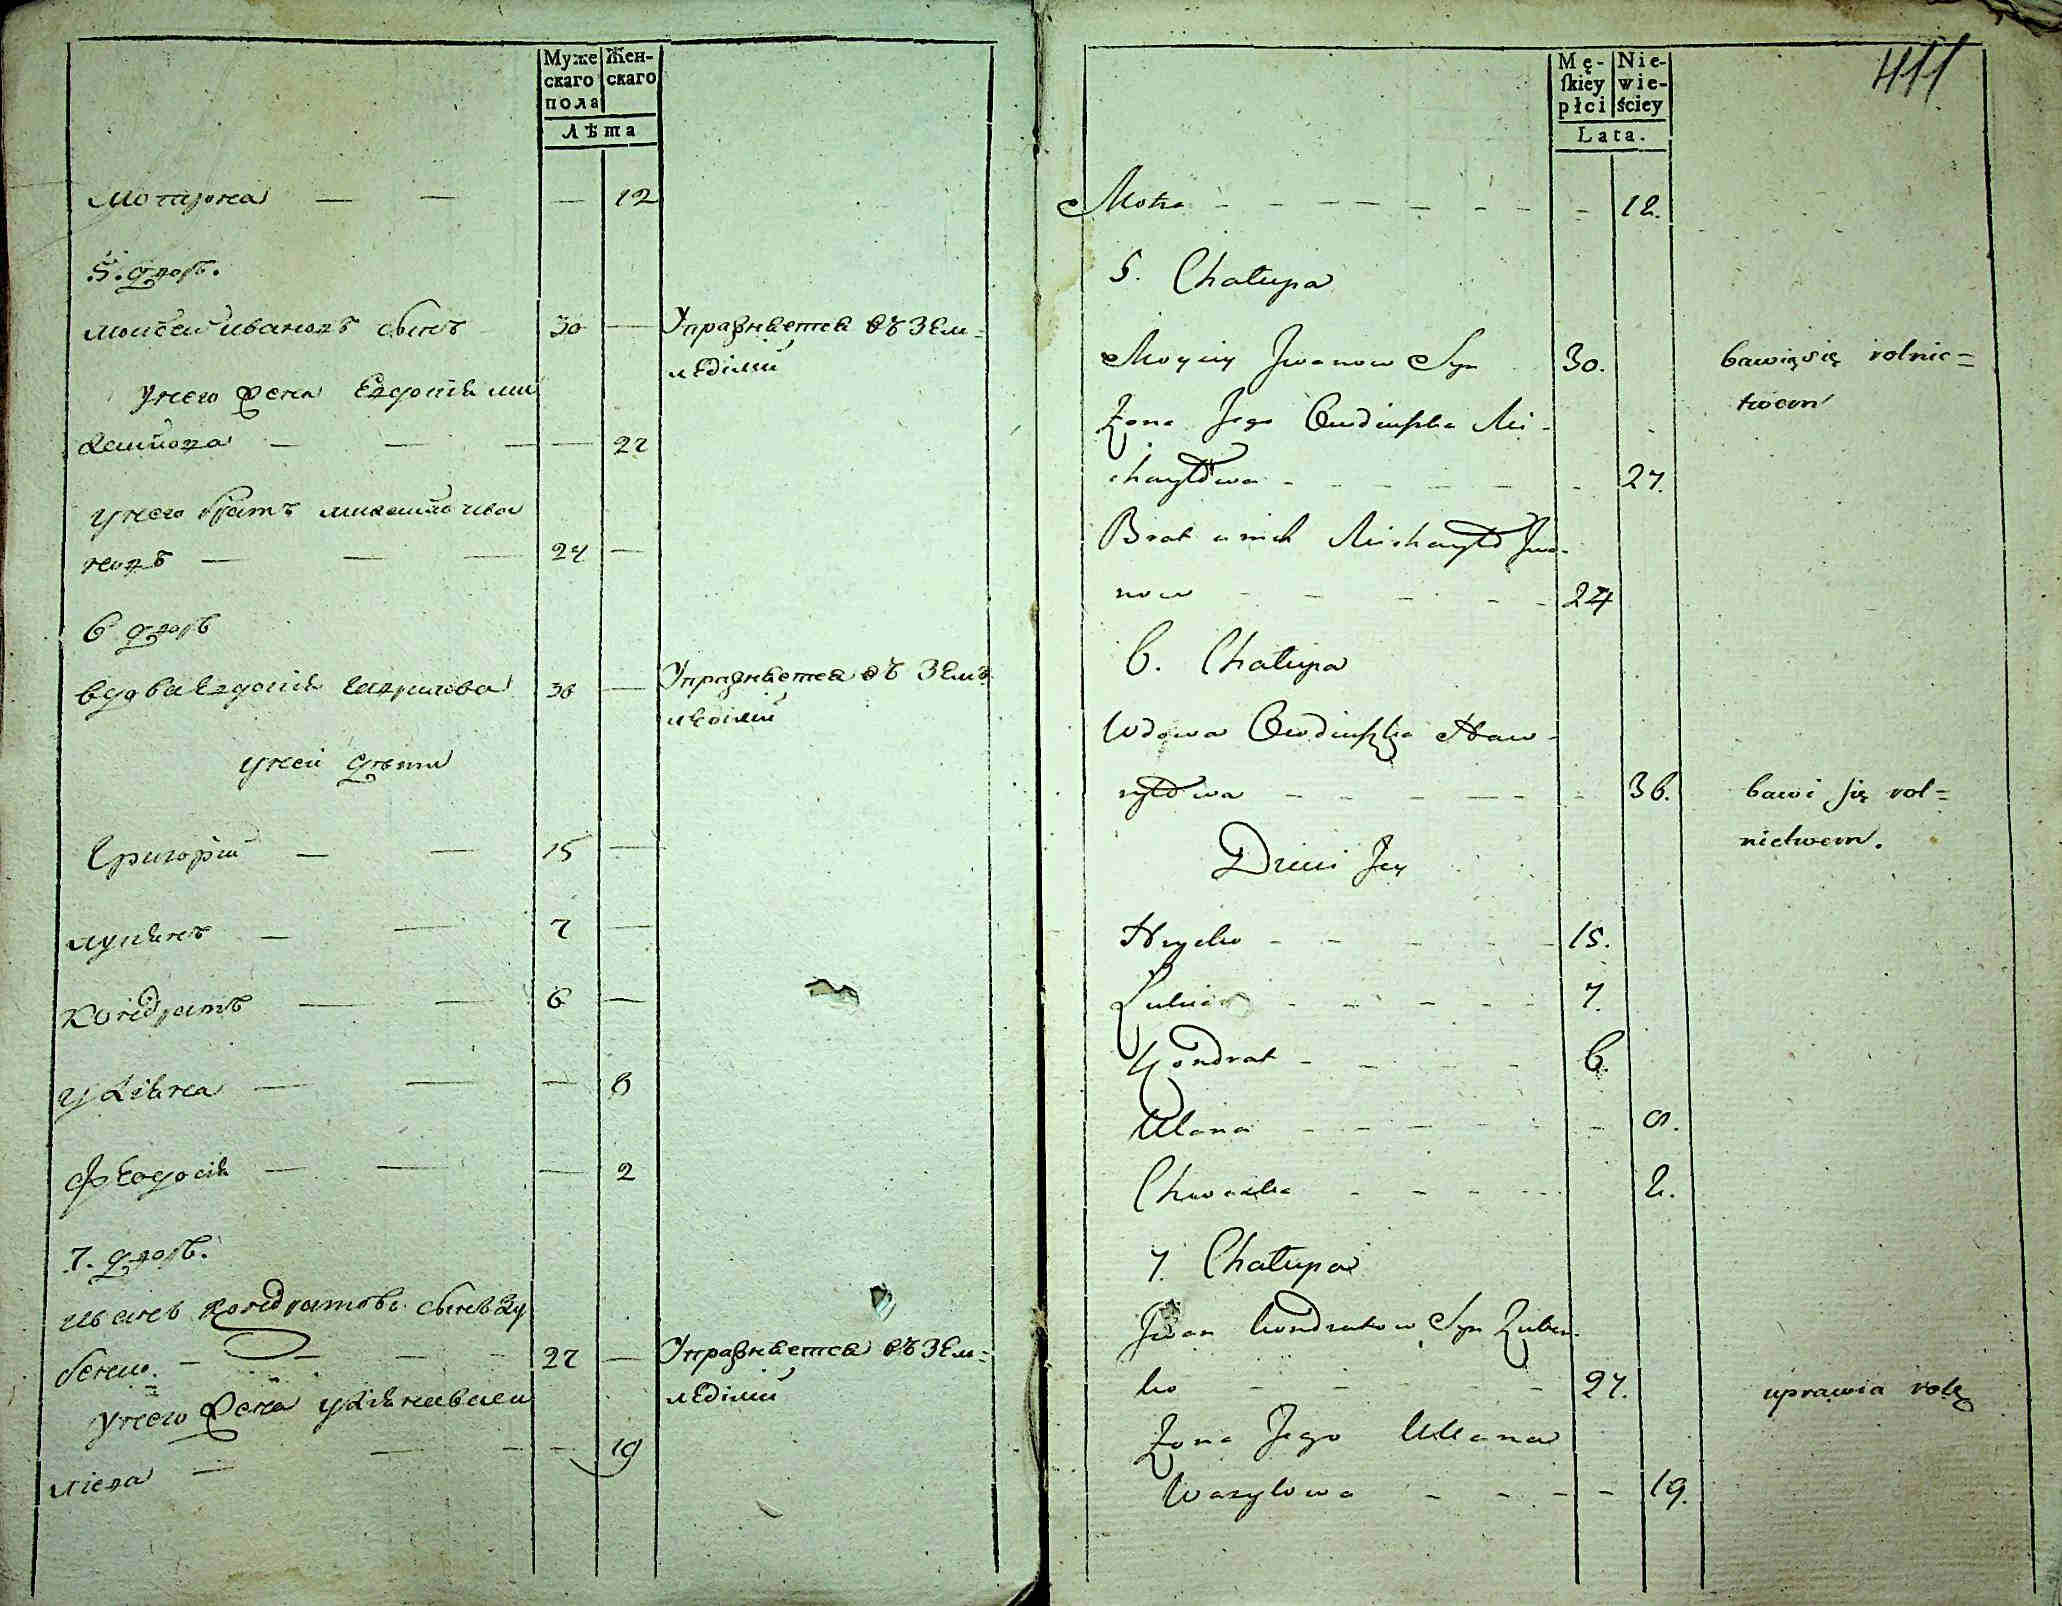 Муже
скаго
пола
Жен-
скаго
Лѣта
мотрона — — — 12
5. дворъ.
моисей ивановъ сынъ 30 — Упражняется въ Зем=
леделіи
у него жена Евдокія ми
хайлова — — — 27
у него братъ михайло ива
новъ — — — 24 —
6 дворъ
вдова Евдокія гаврилова 36 — Упражняется въ Земъ
леделіи
у ней дѣти
Григорій — — 15 —
лукьянъ — — 7 —
Кондратъ — — 6 —
ульяна — — — 8
Феодосія — — — 2
7. дворъ.
иванъ кондратовъ сынъ зу
бенко. — — — 27 — Упражняется въ Зем=
леделіи
у него жена ульяна васи
лієва — — — 19
411
Mę-
ſkiey
płci
Nie-
wie-
ściey
Lata.
Motra - - - - - - - 12.
5. Chałupa
Moyziy Jwanow Syn 30. bawią się rolnic=
twem
Żona Jego Owdiuszka Mi-
chayłowa - - - - - - 27.
Brat u nich Michayło Jwa-
now - - - - - 24
6. Chałupa
Wdowa Owdiuszka Haw-
ryłowa - - - - - - 36. bawi ſię rol=
nictwem.
Dzieci Jey
Hryćko - - - - - - 15.
Łukian - - - - - 7.
Kondrat - - - - - 6.
Ulana - - - - - - - 8.
Chweśka - - - - - 2.
7. Chałupa
Jwan Kondratow Syn Zuben-
ko - - - - - 27. uprawia rolę
Żona Jego Ullana
Wasylowa - - - - - 19.